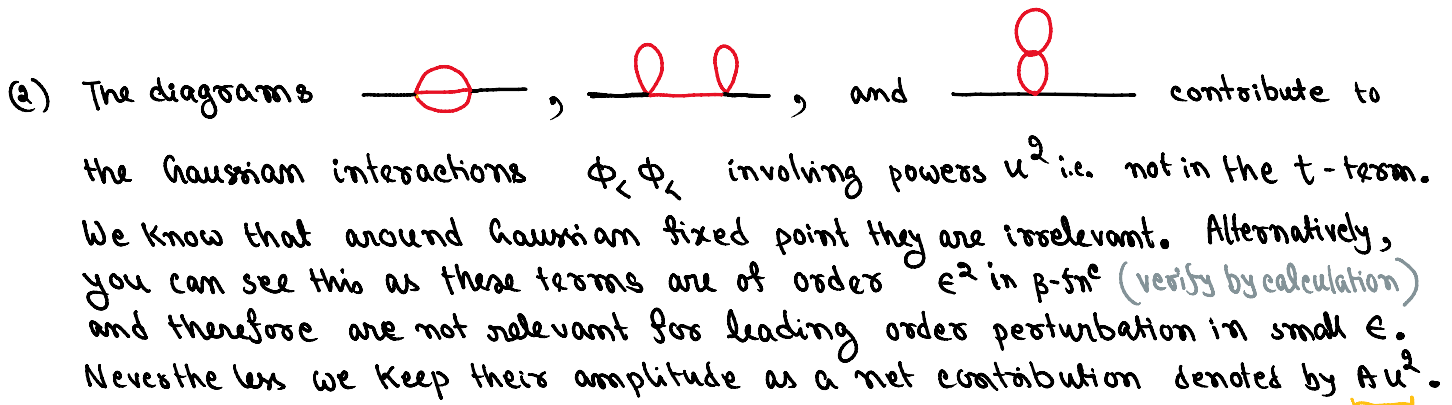 (2) The diagrams , , and contribute to
the Gaussian interactions Φ< Φ< involving powers u² i.e. not in the t-term.
We know that around Gaussian fixed point they are irrelevant. Alternatively,
you can see this as these terms are of order ϵ² in β-fnᶜ (verify by calculation)
and therefore are not relevant for leading order perturbation in small ϵ.
Neverthe less we keep their amplitude as a net contribution denoted by Au².